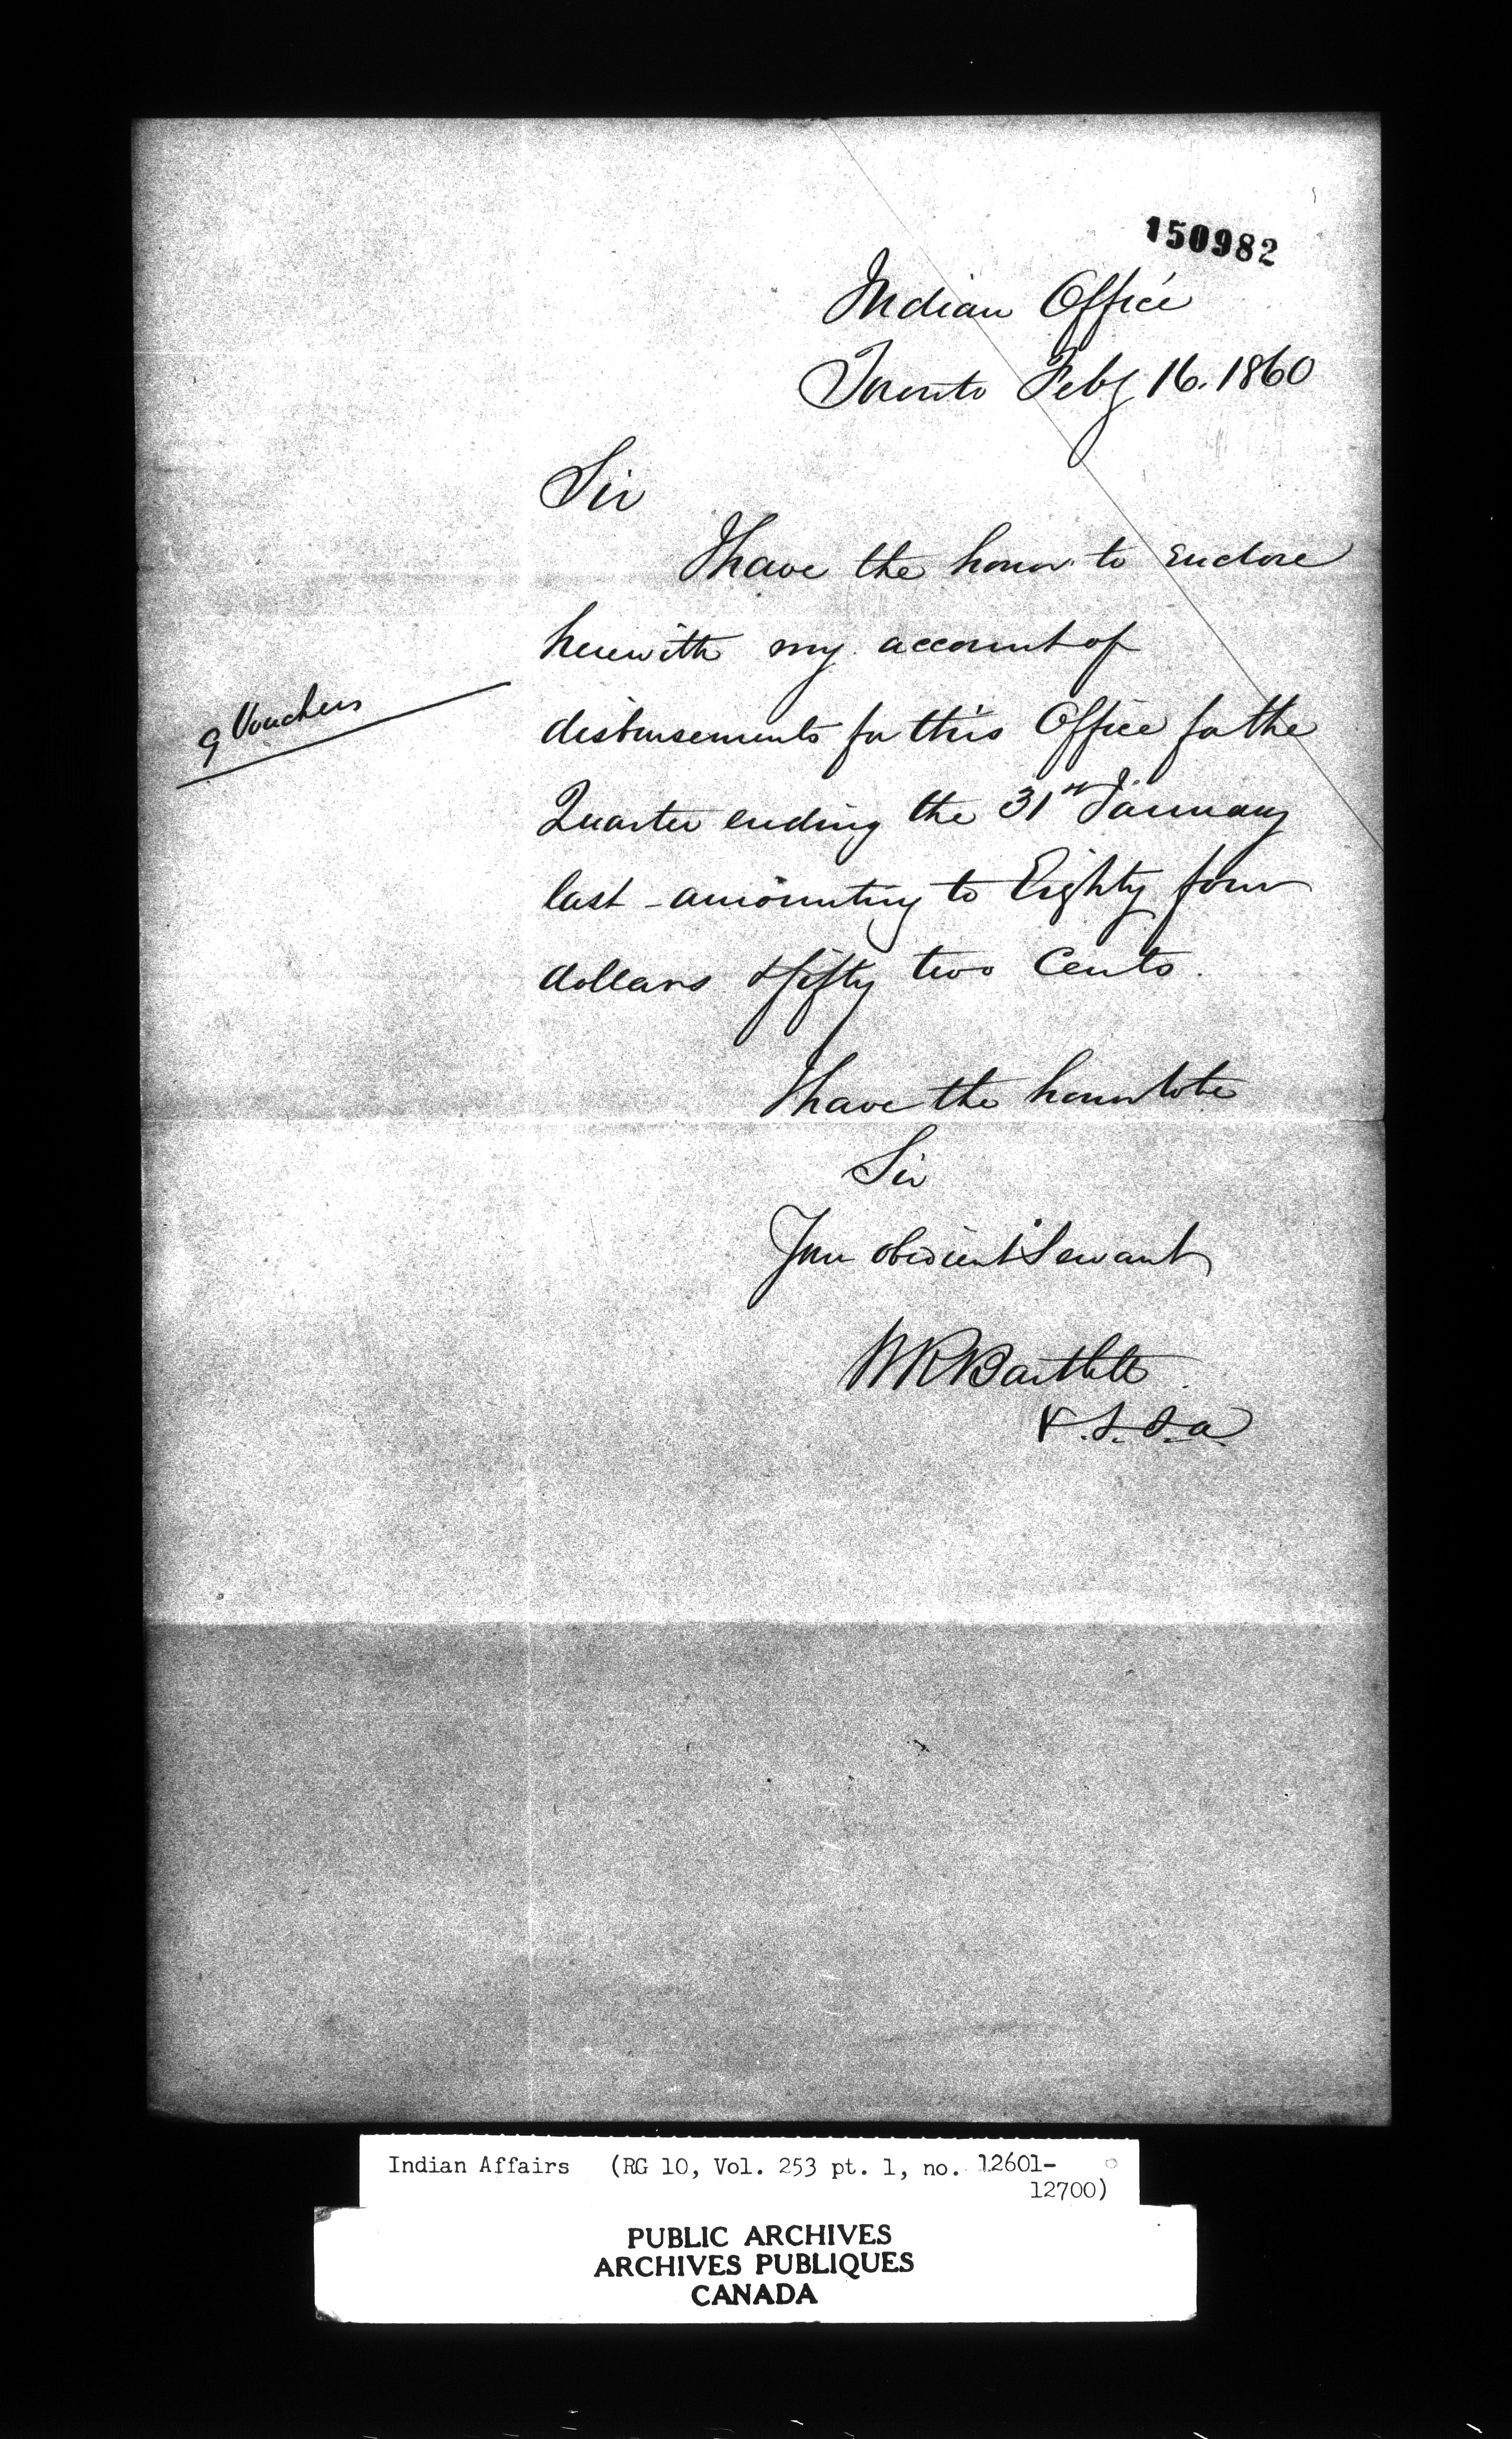 150982
Indian Office
Toronto Feby 16. 1860
Sir
I have the honor to enclose
herewith my account of
9 Vouchers
disbursements for this Office for the
Quarter ending the 31st January
last - amounting to Eighty four
dollars & fifty two Cents.
I have the honor to be
Sir
Your obedient Servant
WRBartlett
V.S.I.a
Indian Affairs (RG 10, Vol. 253 pt. 1, no. 12601-
12700)
PUBLIC ARCHIVES
ARCHIVES PUBLIQUES
CANADA